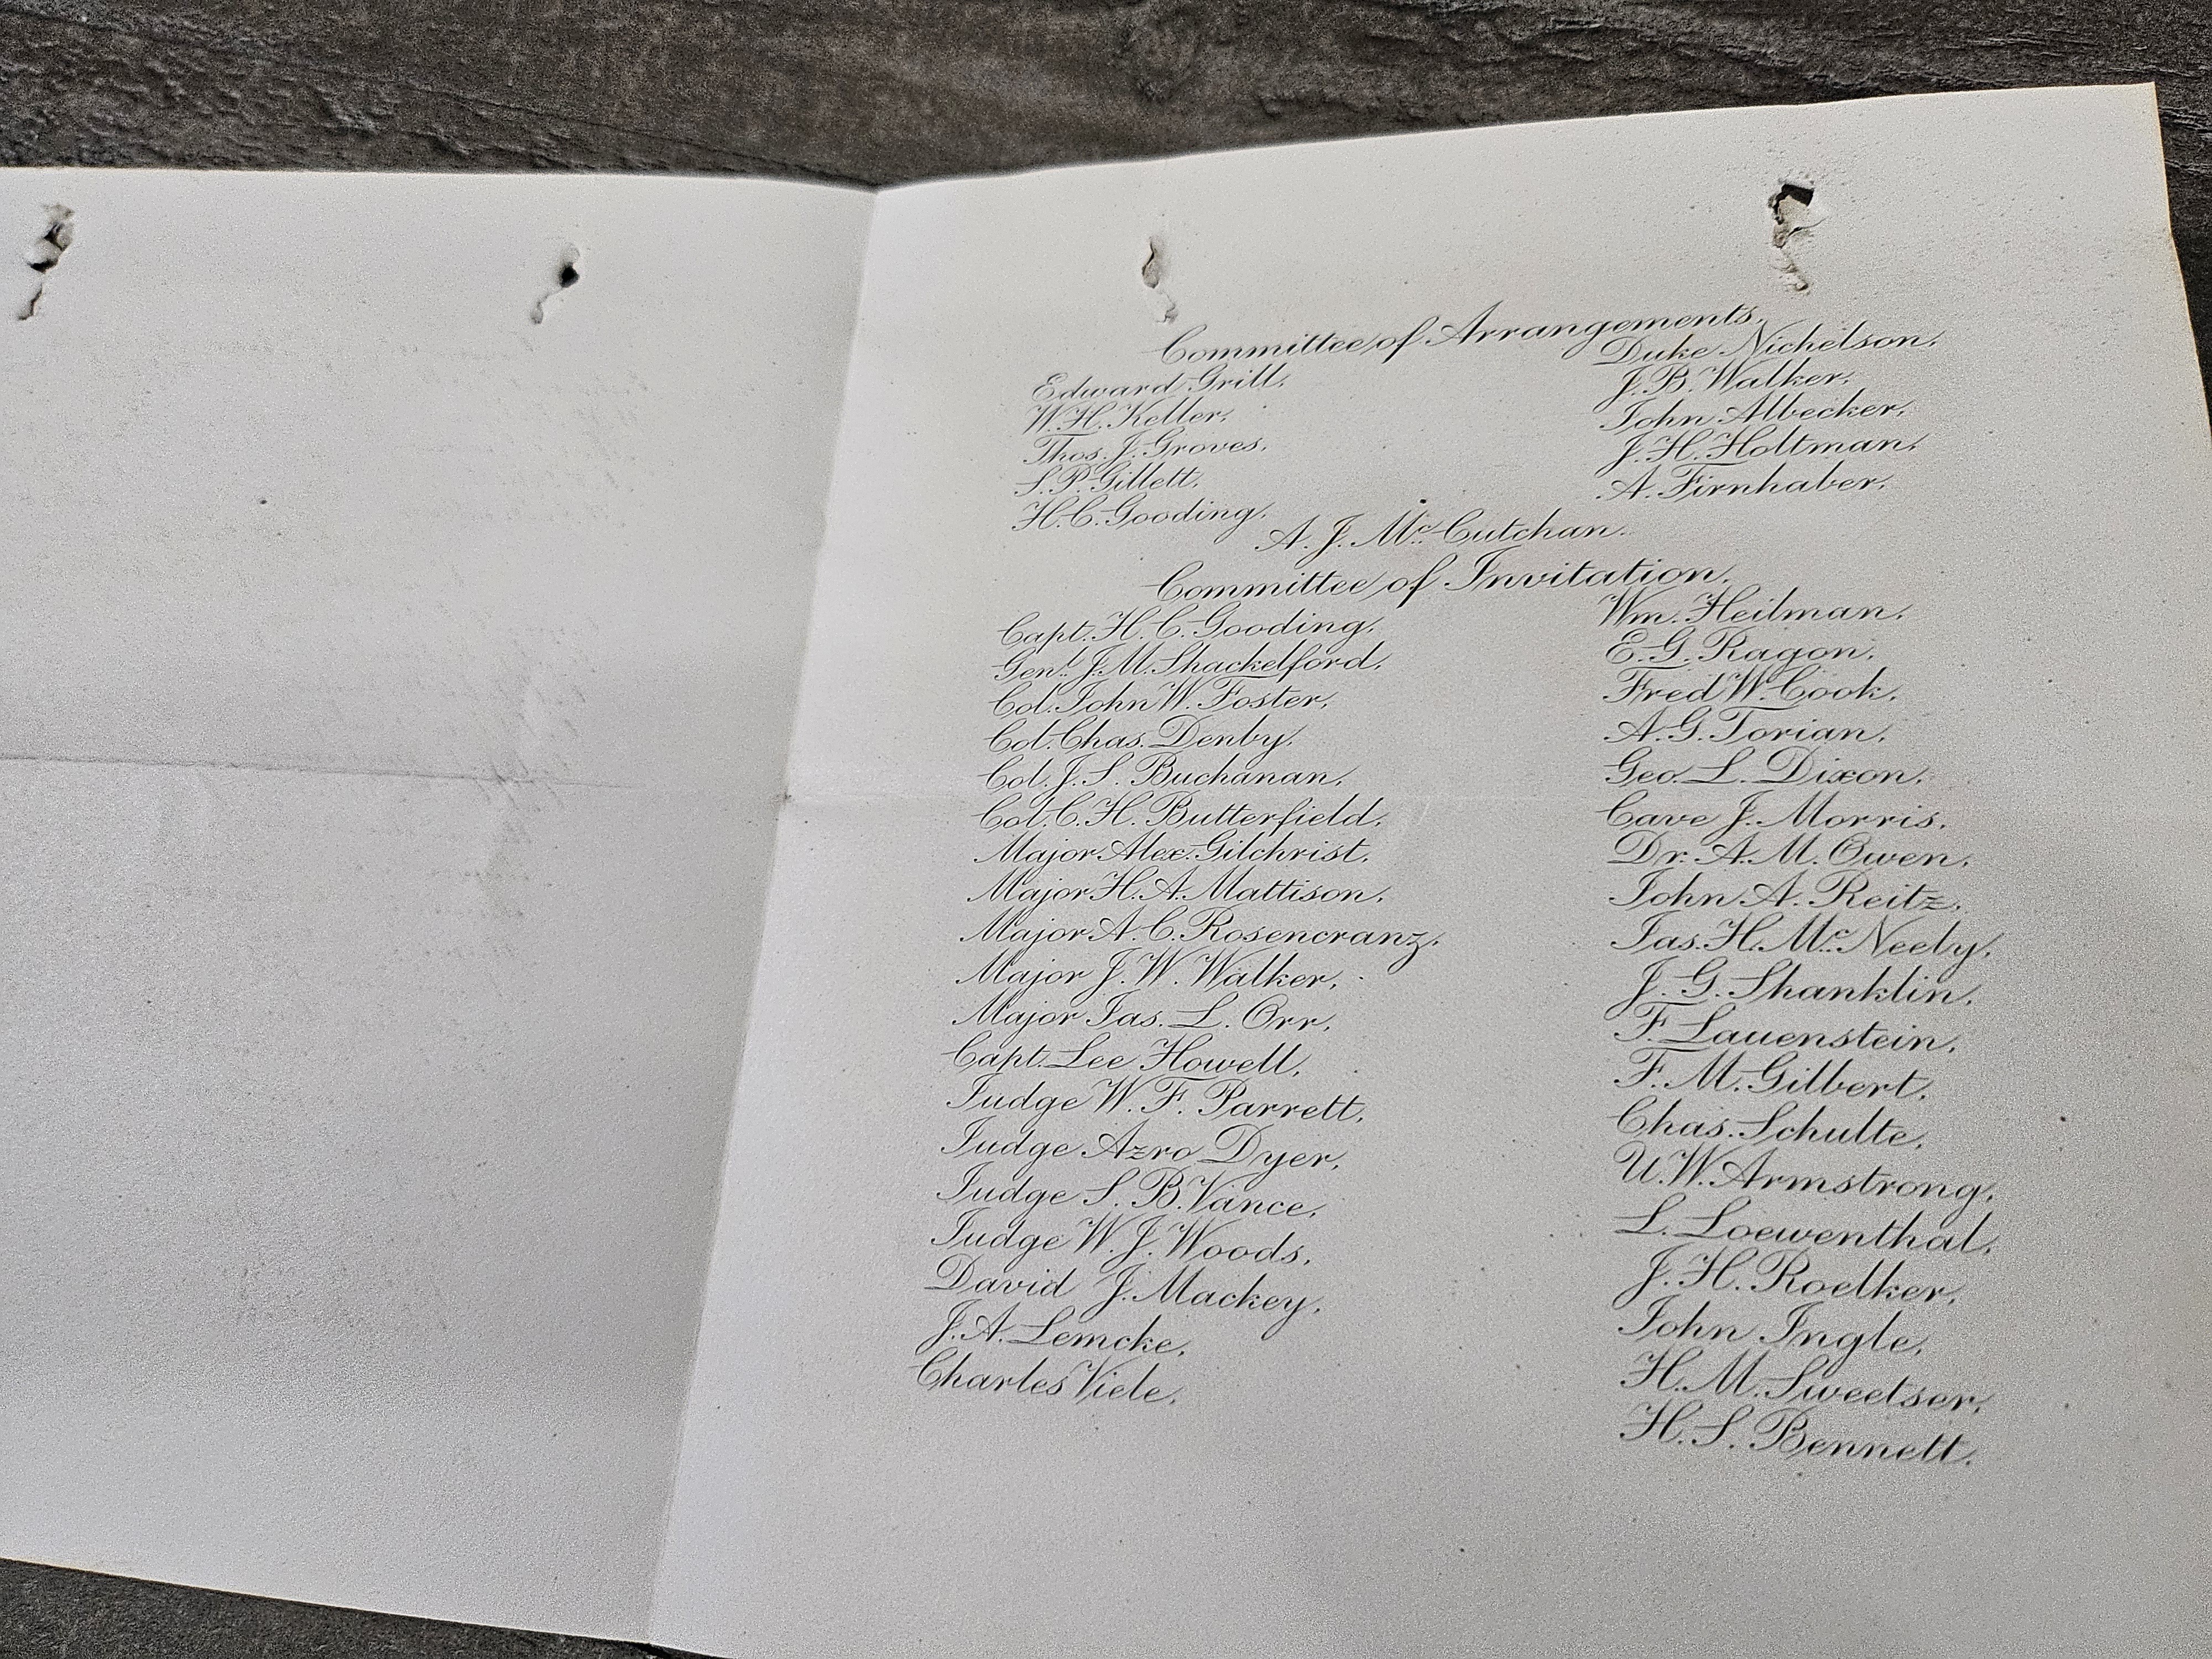 Committee of Arrangements.
Edward Grill,
W. H. Keller,
Thos. J. Groves,
S. P. Gillett,
H. C. Gooding,
Duke Nichelson,
J. B. Walker,
John Albecker,
J. H. Holtman,
A. Firnhaber,
A. J. Mc. Cutchan.
Committee of Invitation.
Capt. H. C. Gooding,
Genl. J. M. Shackelford,
Col. John W. Foster,
Col. Chas. Denby,
Col. J. S. Buchanan,
Col. C. H. Butterfield,
Major Alex. Gilchrist,
Major H. A. Mattison,
Major A. C. Rosencranz,
Major J. W. Walker,
Major Jas. L. Orr,
Capt. Lee Howell,
Judge W. F. Parrett,
Judge Azro Dyer,
Judge S. B. Vance,
Judge W. J. Woods,
David J. Mackey,
J. A. Lemcke,
Charles Viele,
Wm. Heilman,
E. G. Ragon,
Fred W. Cook,
A. G. Torian,
Geo. L. Dixon,
Cave J. Morris,
Dr. A. M. Owen,
John A. Reitz,
Jas. H. Mc. Neely,
J. G. Shanklin,
F. Lauenstein,
F. M. Gilbert,
Chas. Schulte,
U. W. Armstrong,
L. Loewenthal,
J. H. Roelker,
John Ingle,
H. M. Sweetser,
H. S. Bennett.